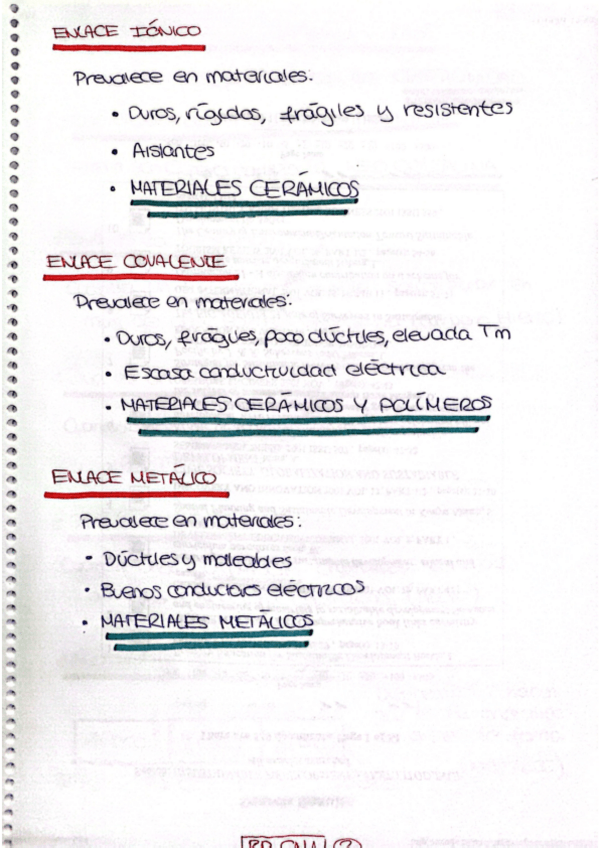 ENLACE IÓNICO
Prevalece en materiales:
• Duros, rígidos, frágiles y resistentes
• Aislantes
• MATERIALES CERÁMICOS
ENLACE COVALENTE
Prevalece en materiales:
• Duros, frágiles, poco dúctiles, elevada Tm
• Escasa conductividad eléctrica
• MATERIALES CERÁMICOS Y POLÍMEROS
ENLACE METÁLICO
Prevalece en materiales:
• Dúctiles y maleables
• Buenos conductores eléctricos
• MATERIALES METÁLICOS